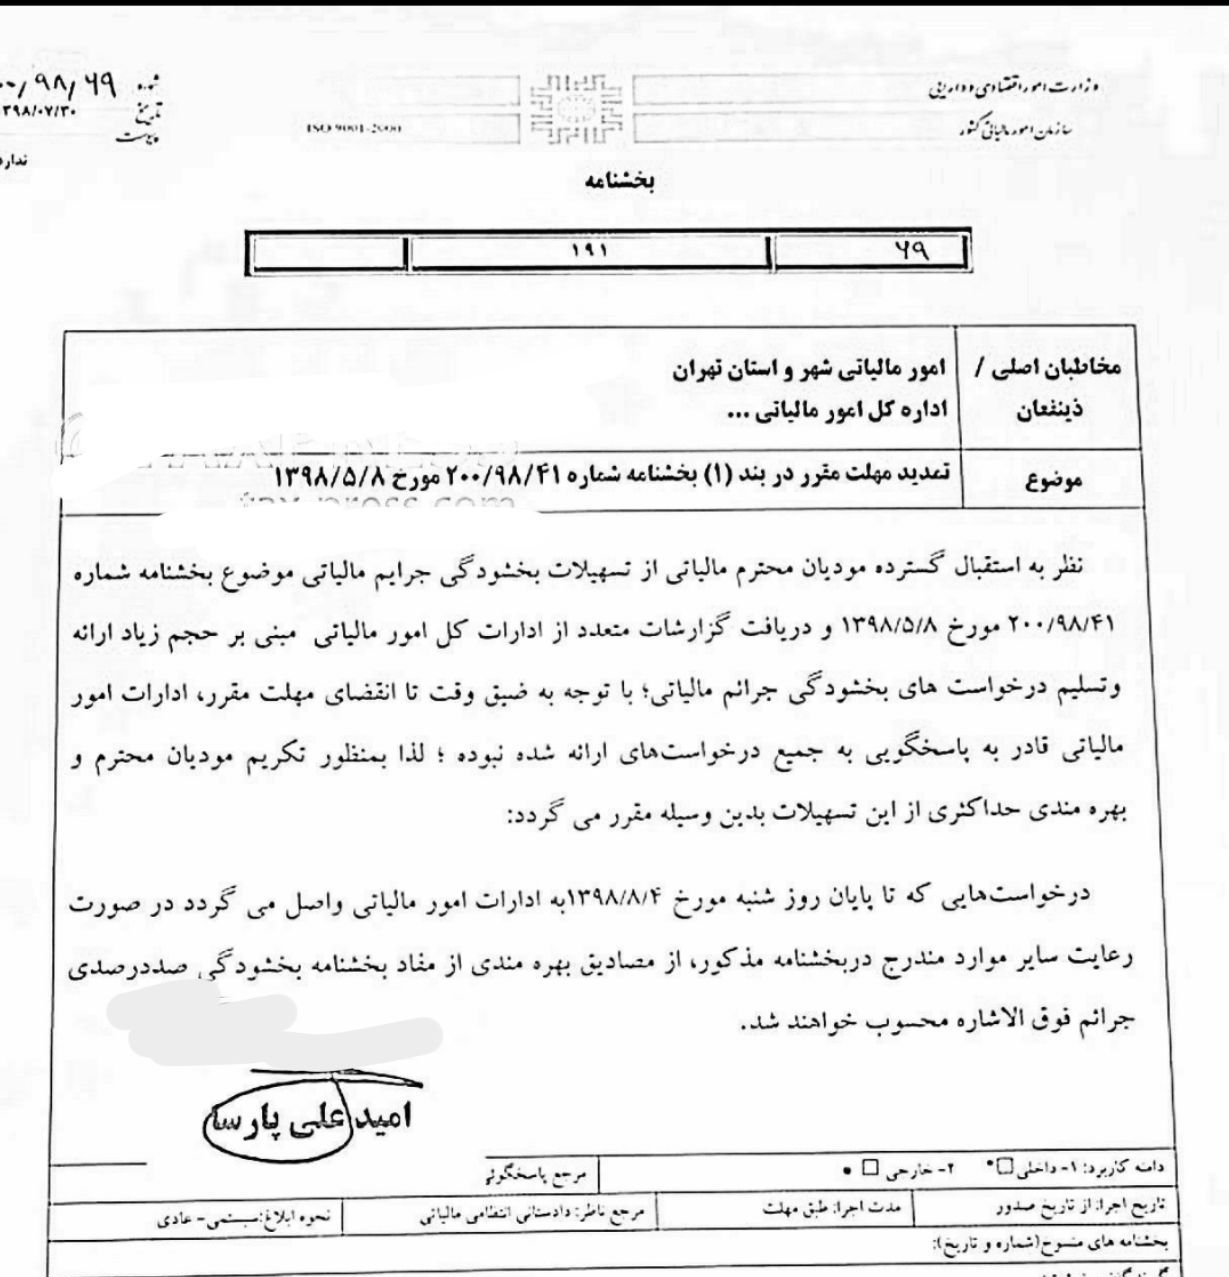 وزارت امور اقتصادی و دارایی
سازمان امور مالیاتی کشور
ISO 9001-2000
شماره ۰۰/۹۸/۶۹
تاریخ ۳۹۸/۰۷/۳۰
پیوست
ندارد
بخشنامه
۶۹ ۱۹۱
مخاطبان اصلی / ذینفعان
امور مالیاتی شهر و استان تهران
اداره کل امور مالیاتی ...
موضوع
تمدید مهلت مقرر در بند (۱) بخشنامه شماره ۲۰۰/۹۸/۴۱ مورخ ۱۳۹۸/۵/۸
نظر به استقبال گسترده مودیان محترم مالیاتی از تسهیلات بخشودگی جرایم مالیاتی موضوع بخشنامه شماره
۲۰۰/۹۸/۴۱ مورخ ۱۳۹۸/۵/۸ و دریافت گزارشات متعدد از ادارات کل امور مالیاتی مبنی بر حجم زیاد ارائه
وتسلیم درخواست های بخشودگی جرائم مالیاتی؛ با توجه به ضیق وقت تا انقضای مهلت مقرر، ادارات امور
مالیاتی قادر به پاسخگویی به جمیع درخواست‌های ارائه شده نبوده ؛ لذا بمنظور تکریم مودیان محترم و
بهره مندی حداکثری از این تسهیلات بدین وسیله مقرر می گردد:
درخواست‌هایی که تا پایان روز شنبه مورخ ۱۳۹۸/۸/۴به ادارات امور مالیاتی واصل می گردد در صورت
رعایت سایر موارد مندرج دربخشنامه مذکور، از مصادیق بهره مندی از مفاد بخشنامه بخشودگی صددرصدی
جرائم فوق الاشاره محسوب خواهند شد.
امید علی پارسا
دامنه کاربرد: ۱- داخلی ۲- خارجی
مرجع پاسخگوئی
تاریخ اجرا: از تاریخ صدور
مدت اجرا: طبق مهلت
مرجع ناظر: دادستانی انتظامی مالیاتی
نحوه ابلاغ:سیستمی- عادی
بخشنامه های منسوخ(شماره و تاریخ):